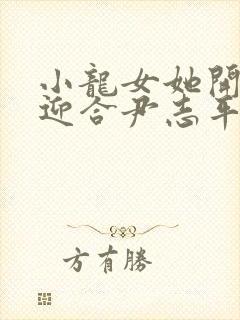 小龍女她開
迎合尹志平
方有勝